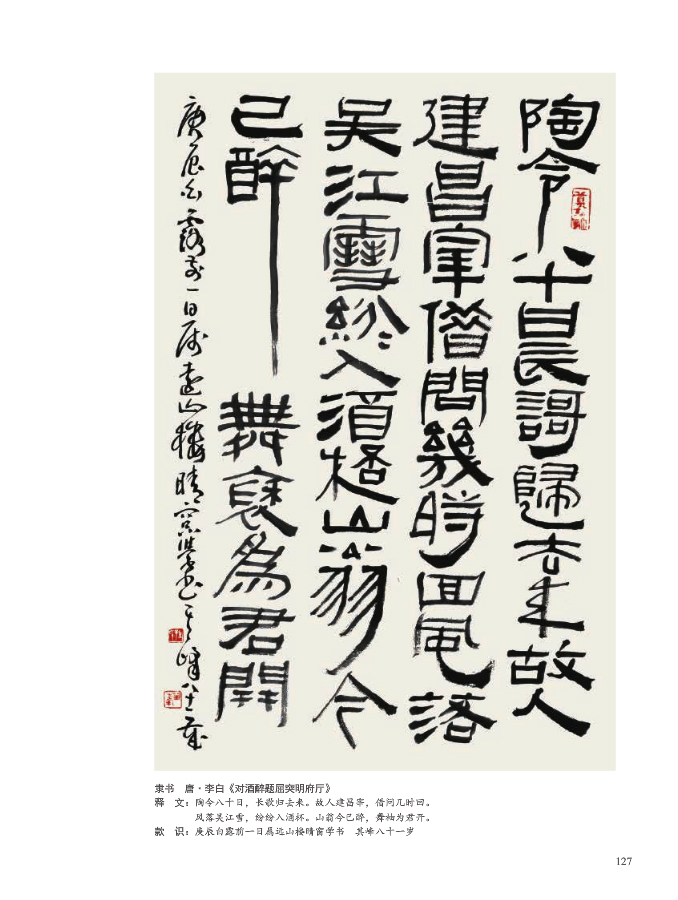 陶令八十日長謌歸去来故人
建昌宰借問幾時回風落
吴江雪紛〻入酒桮山翁今
已醉舞褎為君開
庚辰白露前一日属遠山楼晴窓學书其峰八十一歲
隶书　唐·李白《对酒醉题屈突明府厅》
释　文：陶令八十日，长歌归去来。故人建昌宰，借问几时回。
风落吴江雪，纷纷入酒杯。山翁今已醉，舞袖为君开。
款　识：庚辰白露前一日属远山楼晴窗学书　其峰八十一岁
127